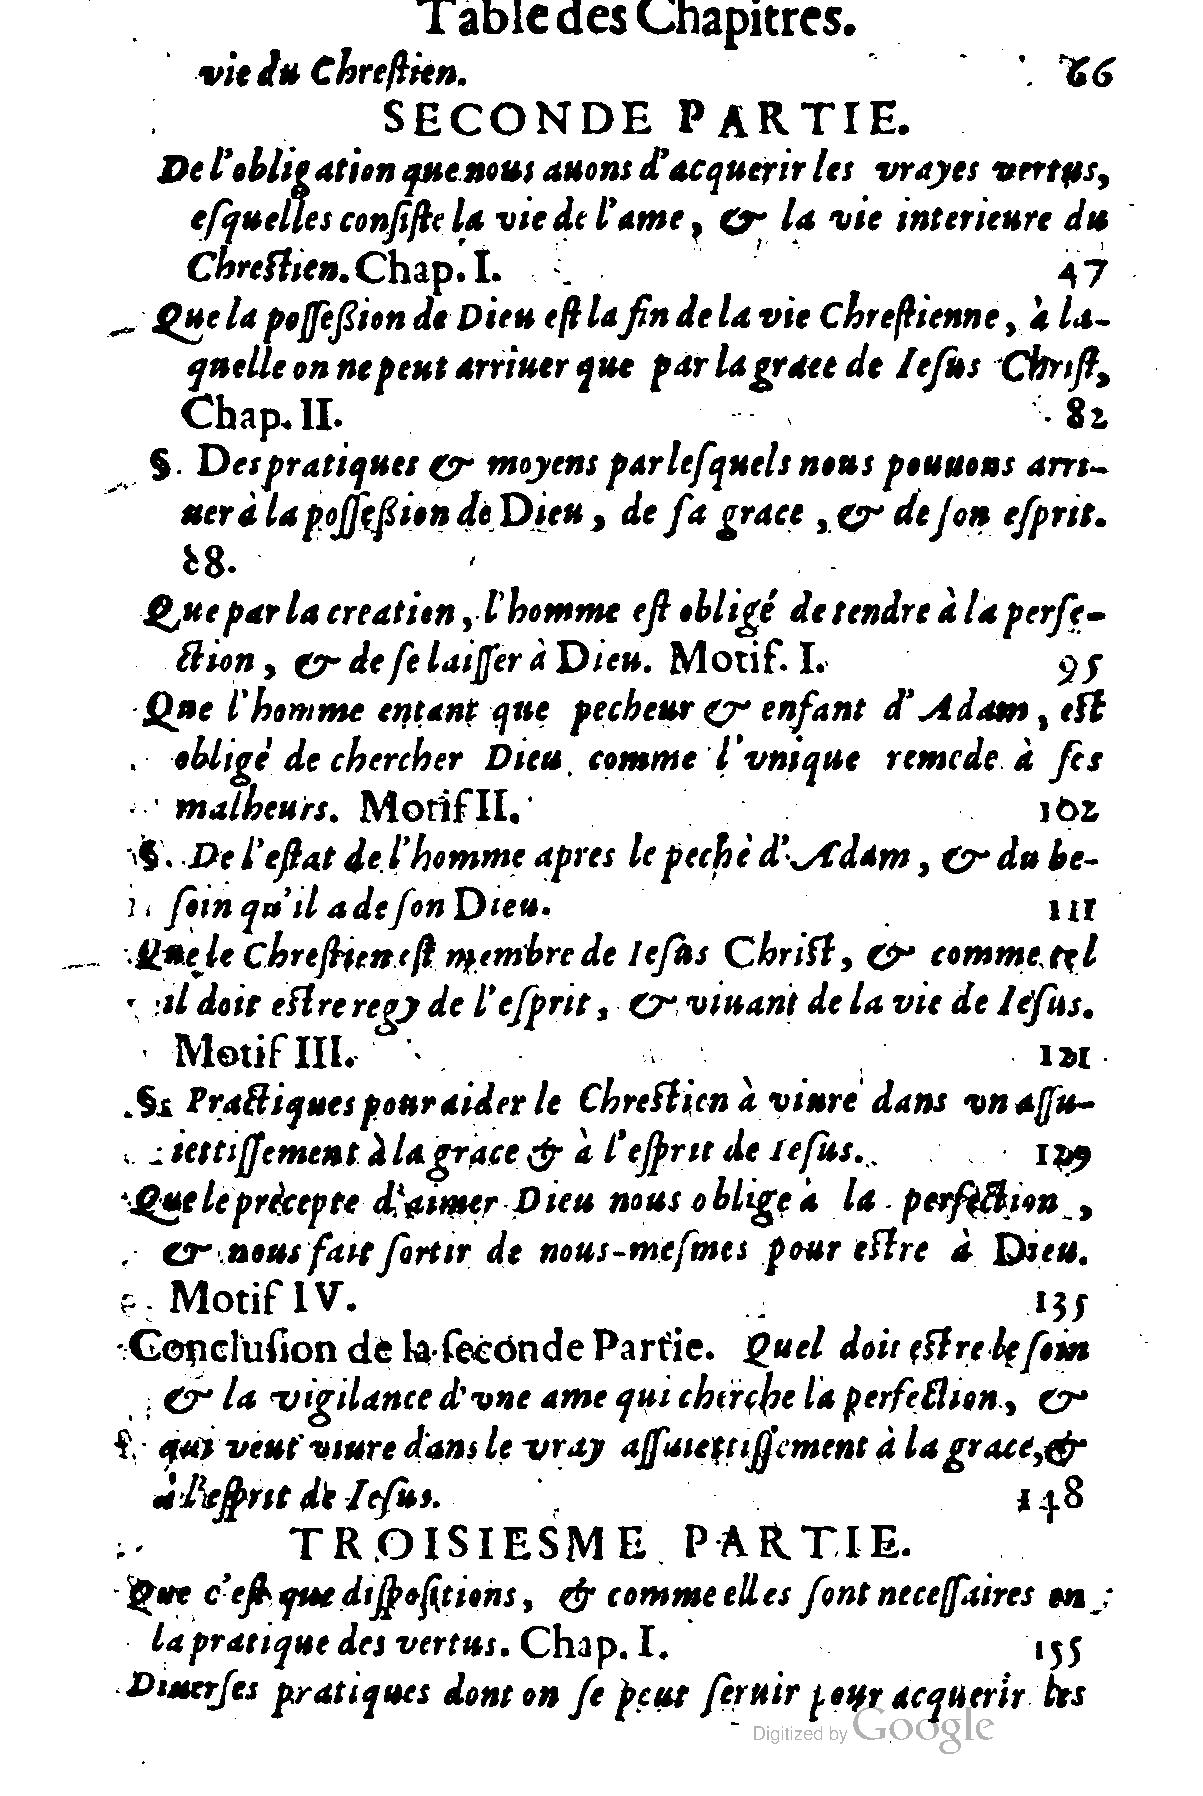 Table des Chapitres.
vie du Chreſtien. 66
SECONDE PARTIE.
De l'obligation que nous auons d'acquerir les vrayes vertus,
eſquelles conſiſte la vie de l'ame, & la vie interieure du
Chreſtien. Chap. I. 47
Que la poſſeßion de Dieu eſt la fin de la vie Chreſtienne, à la-
quelle on ne peut arriuer que par la grace de Ieſus Chriſt,
Chap. II. 82
§. Des pratiques & moyens par leſquels nous pouuons arri-
uer à la poſſeßion de Dieu, de ſa grace, & de ſon eſprit.
88.
Que par la creation, l'homme eſt obligé de tendre à la perfe-
ction, & de ſe laiſſer à Dieu. Motif. I. 95
Que l'homme entant que pecheur & enfant d'Adam, eſt
obligé de chercher Dieu comme l'vnique remede à ſes
malheurs. Motif II. 102
§. De l'eſtat de l'homme apres le pechè d'Adam, & du be-
ſoin qu'il a de ſon Dieu. 111
Que le Chreſtien eſt membre de Ieſus Chriſt, & comme tel
il doit eſtre regy de l'eſprit, & viuant de la vie de Ieſus.
Motif III. 121
§. Practiques pour aider le Chreſtien à viure dans vn aſſu-
iettiſſement à la grace & à l'eſprit de Ieſus. 129
Que le précepte d'aimer Dieu nous oblige à la perfection,
& nous fait ſortir de nous-meſmes pour eſtre à Dieu.
Motif IV. 135
Concluſion de la ſeconde Partie. Quel doit eſtre le ſoin
& la vigilance d'vne ame qui cherche la perfection, &
qui veut viure dans le vray aſſuiettiſſement à la grace, &
à l'eſprit de Ieſus. 148
TROISIESME PARTIE.
Que c'eſt que diſpoſitions, & comme elles ſont neceſſaires en
la pratique des vertus. Chap. I. 155
Diuerſes pratiques dont on ſe peut ſeruir pour acquerir les
Digitized by Google